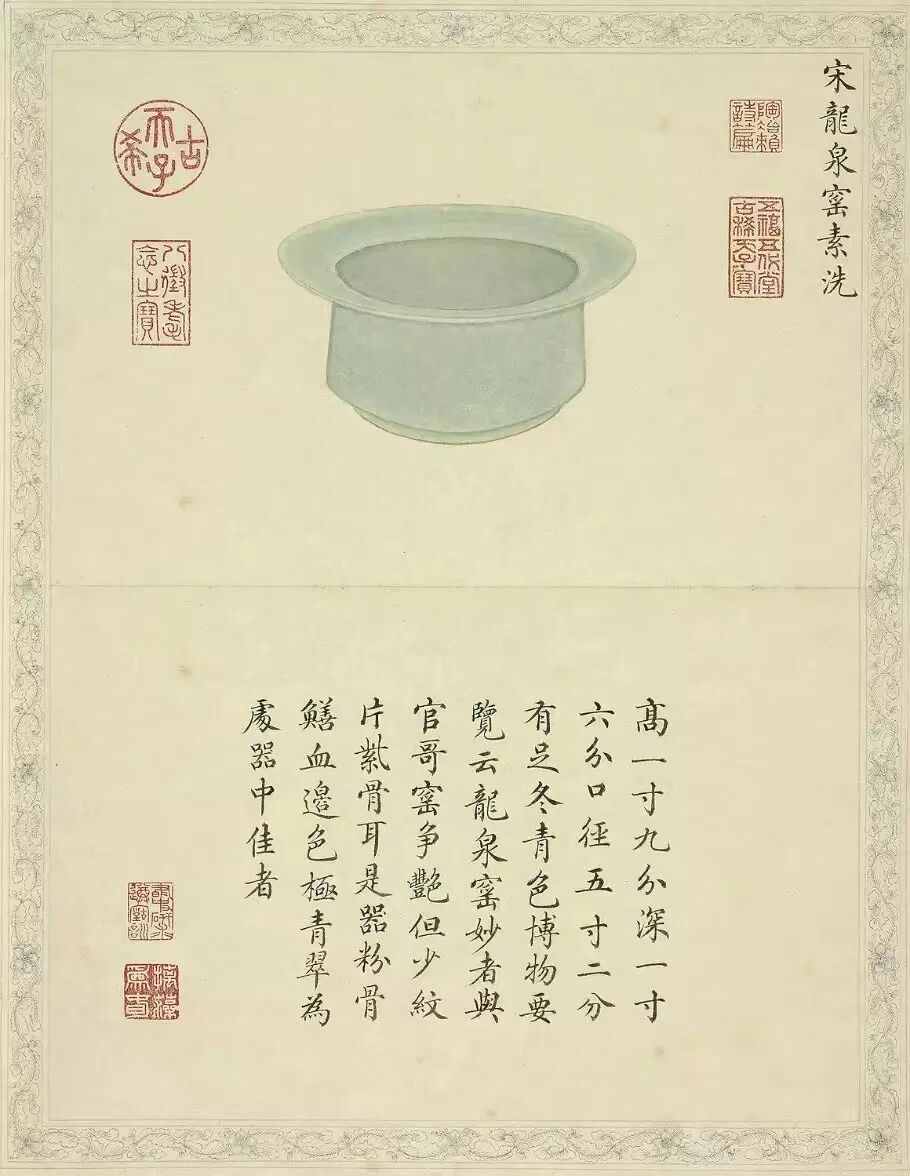 宋龍泉窰素洗
陶冶賴詩篇
五福五代堂古稀天子寶
古希天子
八徵耄念之寶
髙一寸九分深一寸
六分口徑五寸二分
有足冬青色博物要
覽云龍泉窰妙者與
官哥窰争艷但少紋
片紫骨耳是器粉骨
鱔血邊色極青翠為
處器中佳者
摛藻為春